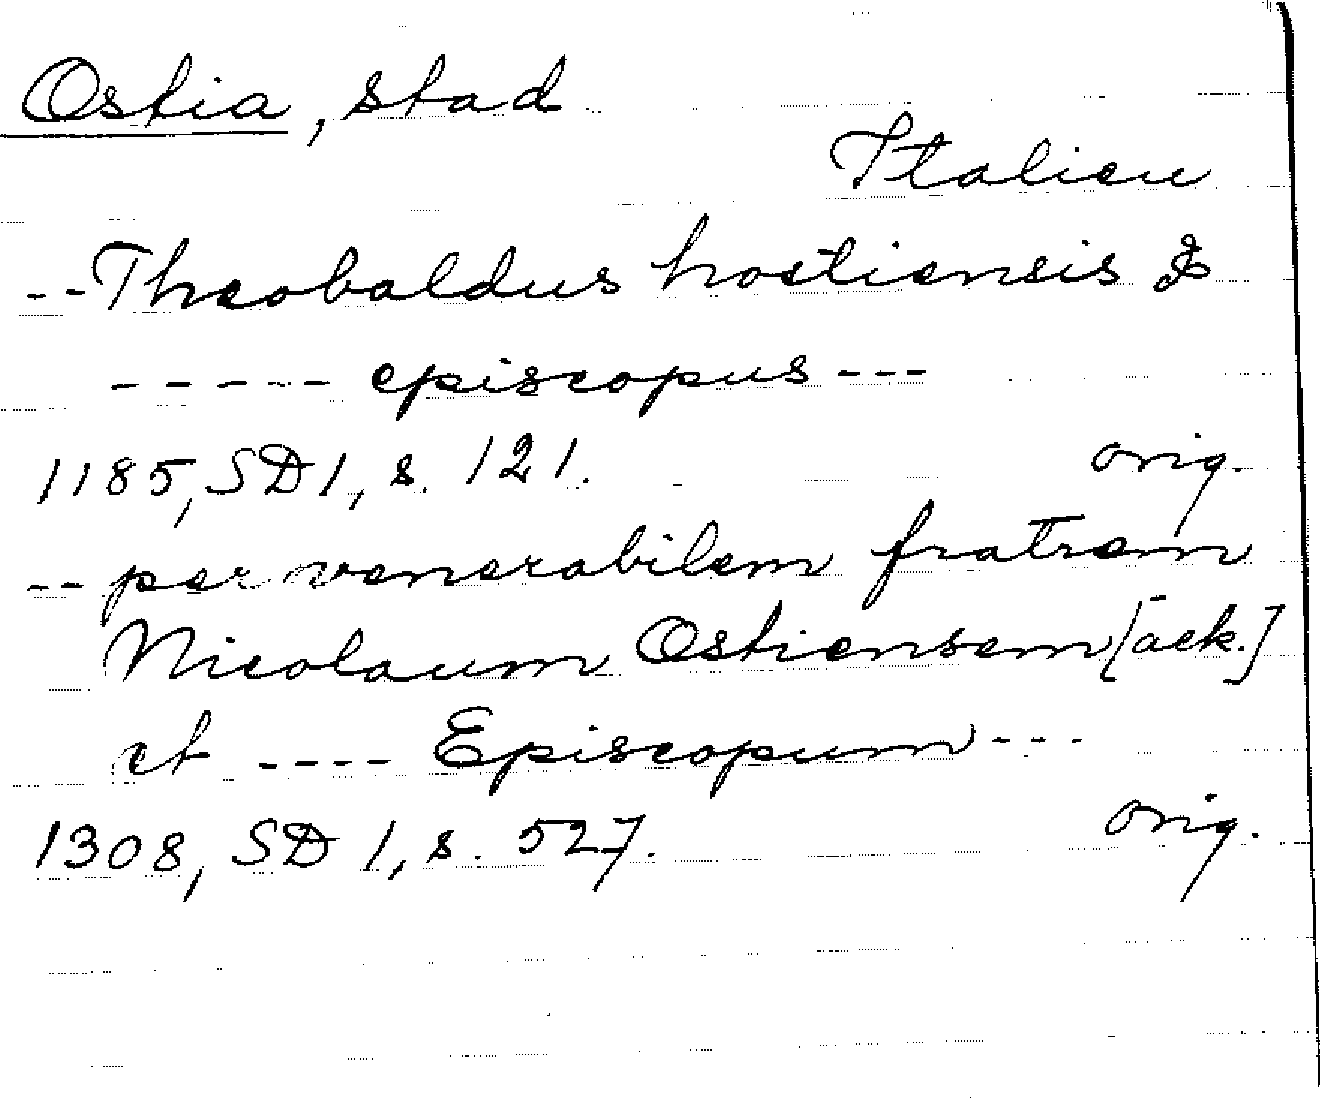 Ostia, stad
Italien
-- Theobaldus hostiensis &
- - - - - - episcopus - - -
1185, SD 1, s. 121. orig.
-- per venerabilem fratrem
Nicolaum Ostiensem [ack.]
et - - - - Episcopum - - -
1308, SD 1, s. 527. orig.